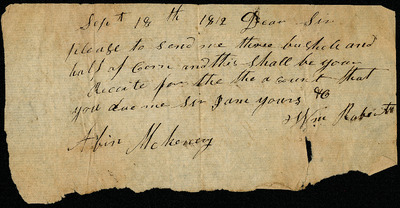 Sept 18th 1812 Dear Sir
please to send me three bushels and
half of Corn and this shall be your
Receite for the the acount that
you due me Sir I am yours &c
Wm Roberts
Abin McKeney